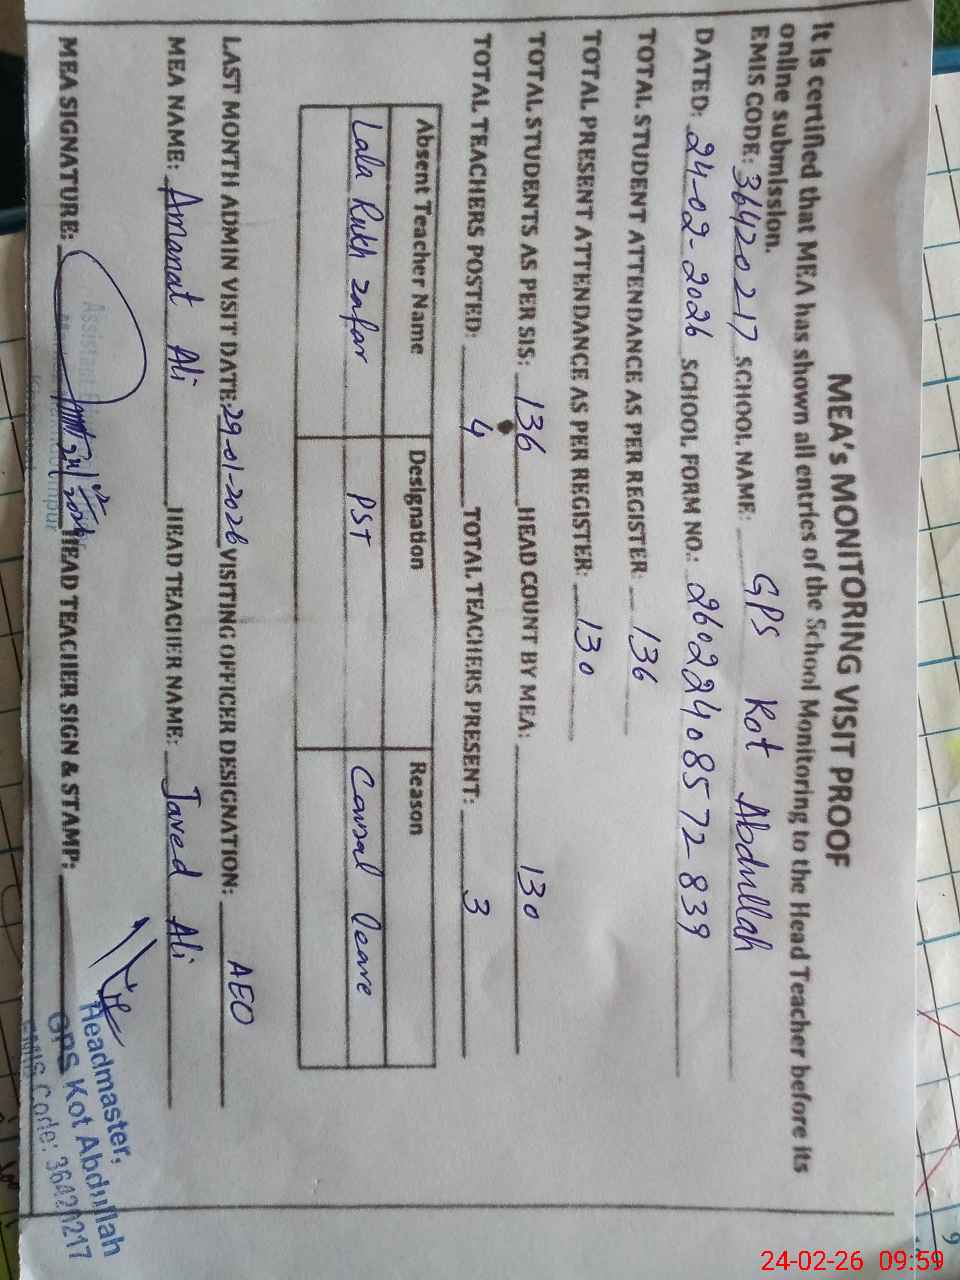 MEA's MONITORING VISIT PROOF
It is certified that MEA has shown all entries of the School Monitoring to the Head Teacher before its
online submission.
EMIS CODE: 36420217 SCHOOL NAME: GPS Kot Abdullah
DATED: 24-02-2026 SCHOOL FORM NO.: 26022408572839
TOTAL STUDENT ATTENDANCE AS PER REGISTER: 136
TOTAL PRESENT ATTENDANCE AS PER REGISTER: 130
TOTAL STUDENTS AS PER SIS: 136 HEAD COUNT BY MEA: 130
TOTAL TEACHERS POSTED: 4 TOTAL TEACHERS PRESENT: 3
Absent Teacher Name Designation Reason
Lala Rukh Zafar PST Causal leave
LAST MONTH ADMIN VISIT DATE: 29-01-2026 VISITING OFFICER DESIGNATION: AEO
MEA NAME: Amanat Ali HEAD TEACHER NAME: Javed Ali
MEA SIGNATURE: HEAD TEACHER SIGN & STAMP:
Headmaster,
GPS Kot Abdullah
EMIS Code: 36420217
24-02-26 09:59